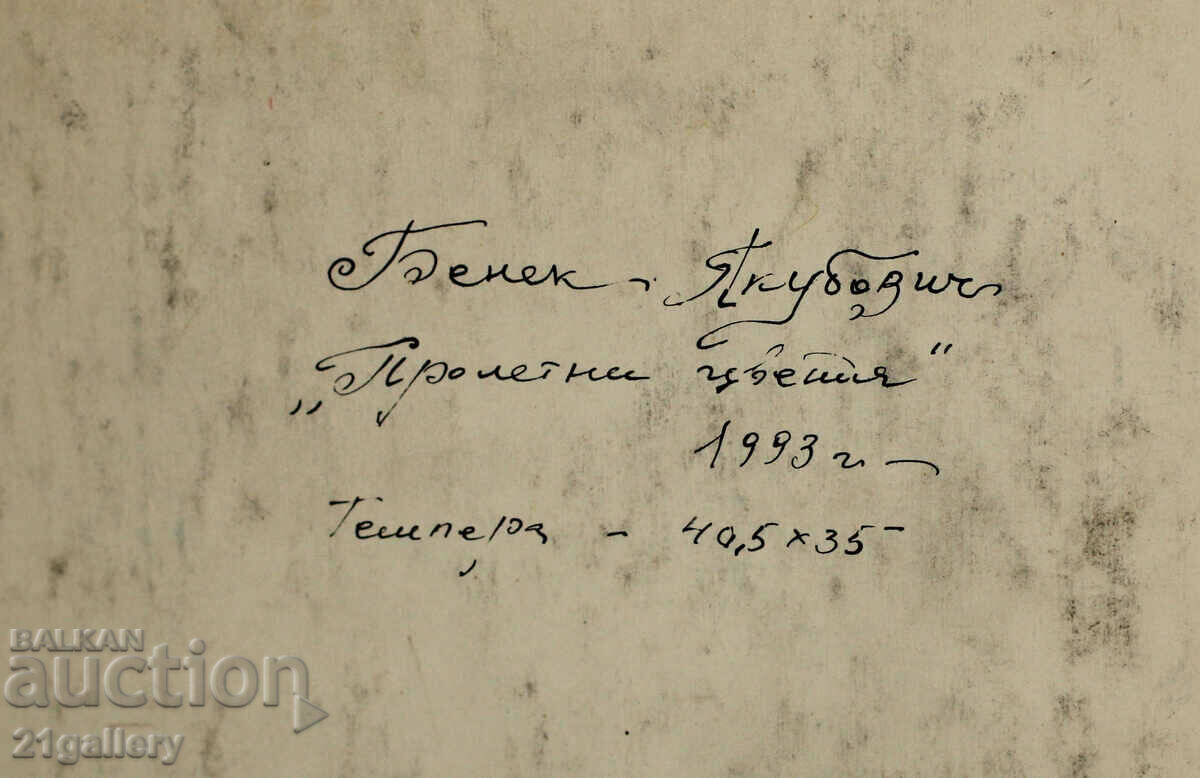 Бенек - Якубович
„Пролетни цветя"
1993 г. -
Темпера - 40,5 x 35
BALKAN
auction
21gallery